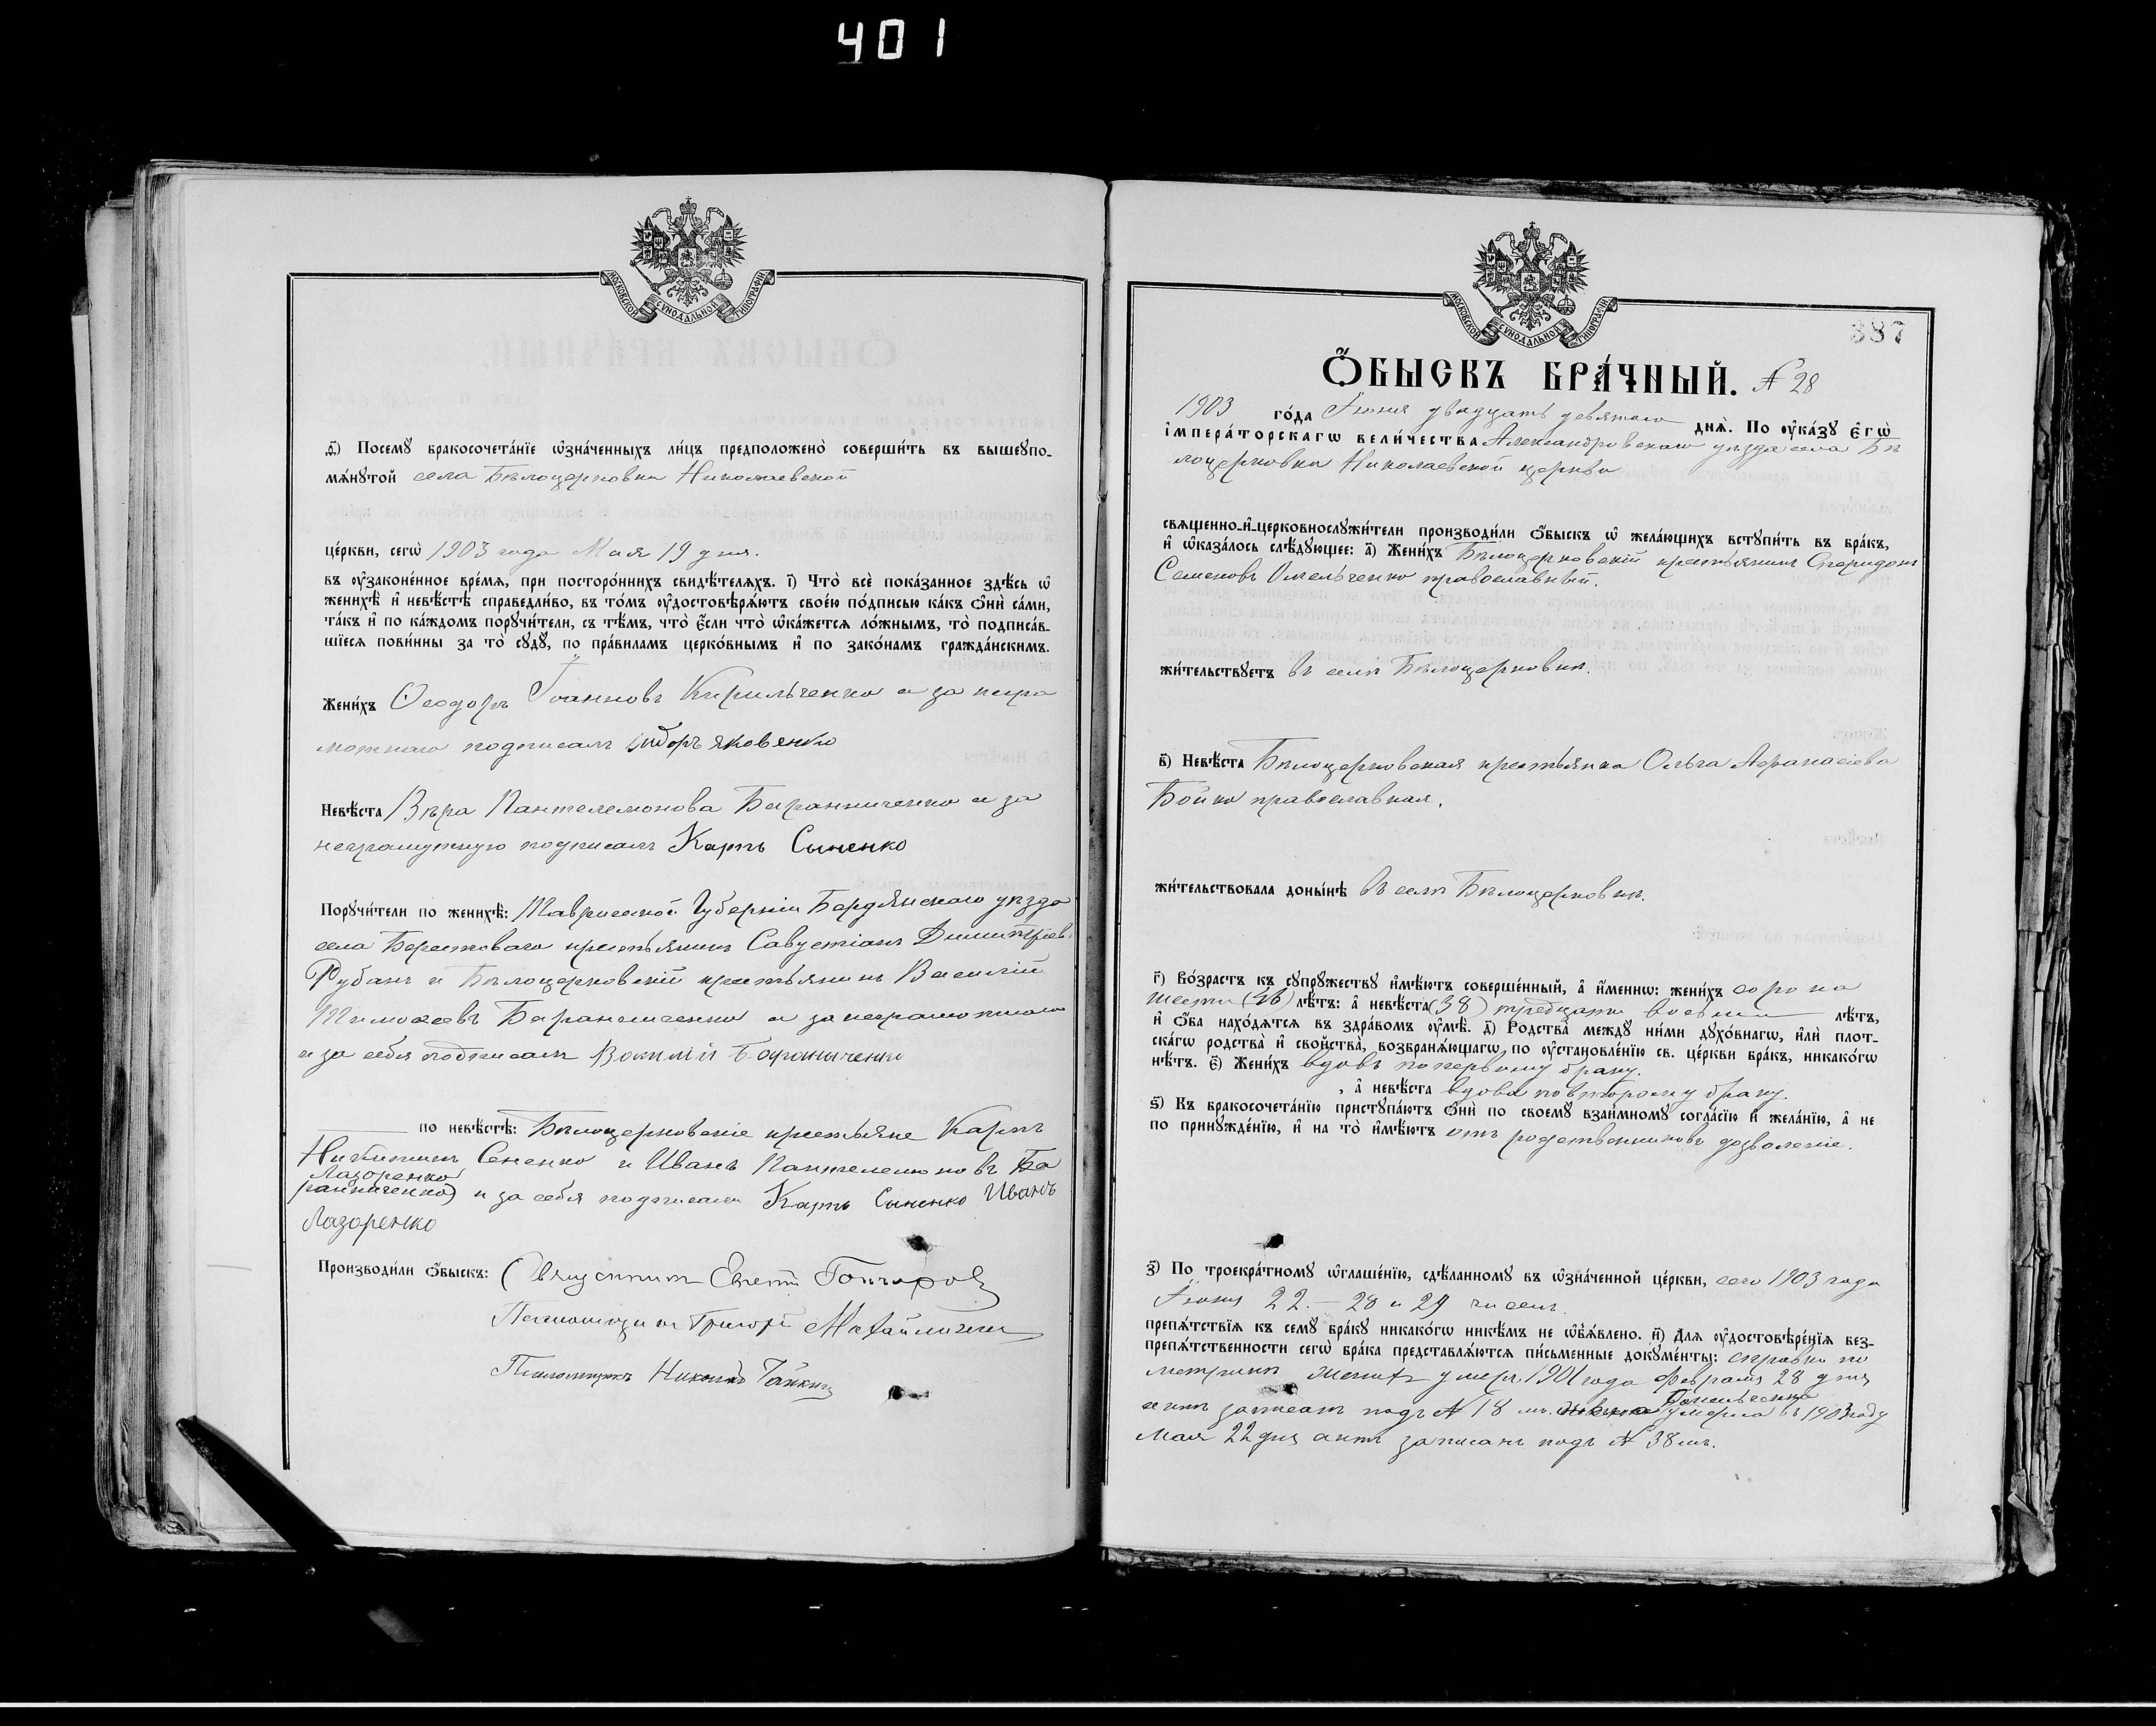 401
МОСКОВСКОЙ СѴНОДАЛЬНОЙ ТИПОГРАФІИ
ѳ҃) Посемꙋ бракосочета́нїе ѡ҆зна́ченныхъ ли́цъ предположено̀ соверши́ть въ вышеꙋпо-
мѧ́нꙋтой села Бѣлоцерковки Николаевской
це́ркви, сегѡ̀ 1903 года Мая 19 дня.
въ ᲂу҆зако́ненное вре́мѧ, при посторо́ннихъ свидѣ́телѧхъ. і҃) Что̀ всѐ пока́занное здѣ́сь ѡ҆
женихѣ̀ и҆ невѣ́стѣ справедли́во, въ то́мъ ᲂу҆достовѣрѧ́ютъ свое́ю по́дписью ка́къ ѻ҆нѝ са́ми,
та́къ и҆ по ка́ждомъ порꙋчи́тели, съ тѣ́мъ, что̀ є҆́сли что̀ ѡ҆ка́жетсѧ ло́жнымъ, то̀ подписа́в-
шїесѧ пови́нны за то̀ сꙋдꙋ̀, по пра́виламъ церко́внымъ и҆ по зако́намъ гражда́нскимъ.
Жени́хъ Ѳеодоръ Іоанновъ Кирильченко а за негра
мотнаго подписалъ Сидоръ Яковенко
Невѣ́ста Вѣра Пантелемонова Баранниченко а за
неграмотную подписалъ Карпъ Сыненко
Порꙋчи́тели по женихѣ̀: Таврической Губерніи Бердянскаго уѣзда
села Берестоваго крестьянинъ Савустіанъ Димитріев.
Рубанъ и Бѣлоцерковскій крестьянинъ Василій
Тимоѳеевъ Баранниченко а за неграмотнаго
и за себя подписалъ Василій Бараниченко
по невѣ́стѣ: Бѣлоцерковскіе крестьяне Карпъ
Никитинъ Сененко и Иванъ Пантелемоновъ Ба
Лазоренко
ранниченко) и за себя подписали Карпъ Сыненко Иванъ
Лазоренко
Производи́ли ѻ҆́быскъ: Священникъ Гончаровъ
Псаломщикъ Григорій
Псаломщикъ Николай
МОСКОВСКОЙ СѴНОДАЛЬНОЙ ТИПОГРАФІИ
387
Ѻ҆́БЫСКЪ БРА́ЧНЫЙ. № 28
1903 го́да Іюня двадцать девятаго днѧ̀. По ᲂу҆ка́зꙋ Є҆гѡ̀
І҆мпера́торскагѡ вели́чества Александровскаго уѣзда села Бѣ
лоцерковки Николаевской церкви
свѧщенно-и҆-церковнослꙋжи́тели производи́ли ѻ҆́быскъ ѡ҆ жела́ющихъ встꙋпи́ть въ бра́къ,
и҆ ѡ҆каза́лось слѣ́дꙋющее: а҃) Жени́хъ Бѣлоцерковскій крестьянинъ Спиридонъ
Семеновъ Омельченко православный.
жи́тельствꙋетъ въ селѣ Бѣлоцерковкѣ.
в҃) Невѣ́ста Бѣлоцерковская крестьянка Ольга Аѳанасіева
Бойко православная.
жи́тельствовала доны́нѣ въ селѣ Бѣлоцерковкѣ.
г҃) Во́зрастъ къ сꙋпрꙋ́жествꙋ и҆мѣ́ютъ соверше́нный, а҆ и҆́меннѡ: жени́хъ сорока
шести (46) лѣ́тъ: а҆ невѣ́ста (38) тредцати восьми лѣ́тъ,
и҆ ѻ҆́ба нахо́дѧтсѧ въ здра́вомъ ᲂу҆мѣ̀. д҃) Родства̀ междꙋ ни́ми дꙋхо́внагѡ, и҆лѝ плот-
ска́гѡ родства̀ и҆ свойства̀, возбранѧ́ющагѡ по ᲂу҆становле́нїю св. це́ркви бра́къ, никако́гѡ
нѣ́тъ. є҃) Жени́хъ вдовъ по первому браку.
, а҆ невѣ́ста вдова по второму браку.
ѕ҃) Къ бракосочета́нїю пристꙋпа́ютъ ѻ҆нѝ по своемꙋ̀ взаи́мномꙋ согла́сїю и҆ жела́нїю, а҆ не
по принꙋжде́нїю, и҆ на то̀ и҆мѣ́ютъ отъ родственниковъ дозволеніе.
з҃) По троекра́тномꙋ ѡ҆глаше́нїю, сдѣ́ланномꙋ въ ѡ҆зна́ченной це́ркви, сего 1903 года
Іюня 22. — 28 и 29 чиселъ.
препѧ́тствїѧ къ семꙋ̀ бра́кꙋ никако́гѡ никѣ́мъ не ѡ҆б̾ѧ́влено. и҃) Длѧ ᲂу҆достовѣре́нїѧ без-
препѧ́тственности сегѡ̀ бра́ка представлѧ́ютсѧ пи́сьменные докꙋме́нты: справка по
метрикѣ умеръ 1901 года Февраля 28 дня
актъ записанъ подъ № 18 мъ. умерла въ 1903 году
Мая 22 дня актъ записанъ подъ № 38 мъ.